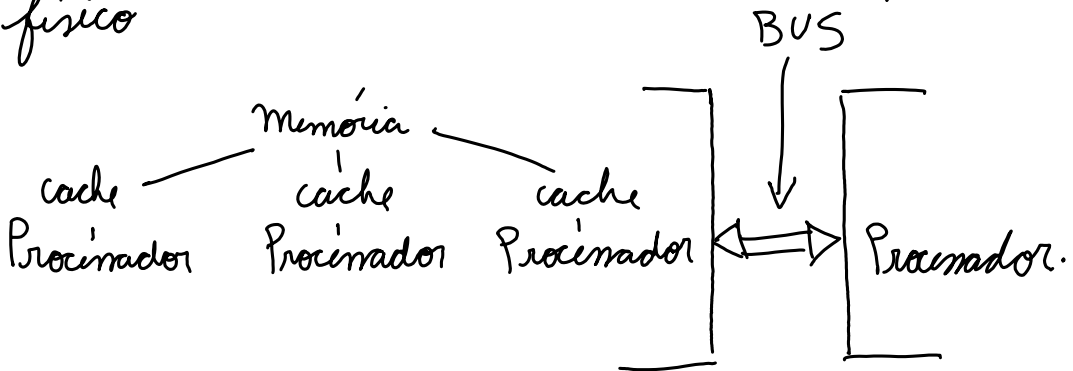 físico
BUS
Memória
cache cache cache
Processador Processador Processador Processador.